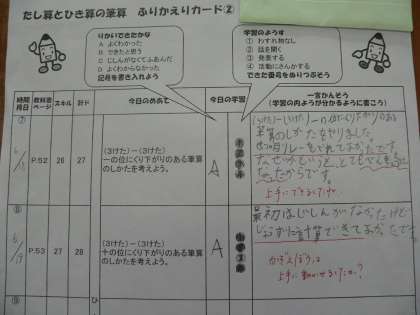 たし算とひき算の筆算 ふりかえりカード②
りかいできたかな
A よくわかった
B できたと思う
C じしんがなくてふあんだ
D よくわからなかった
記号を書き入れよう
学習のようす
① わすれ物なし
② 話を聞く
③ 発表する
④ 活動にさんかする
できた番号をぬりつぶそう
時間
月日
教科書
ページ
スキル
計ド
今日のめあて
今日の学習
一言かんそう
(学習の内ようが分かるように書こう)
⑦
P.52
26
27
(3けた)ー(3けた)
一の位にくり下がりのある筆算
のしかたを考えよう。
A
(3けた)ー(3けた)一の位にくり下がりのある
筆算のしかたをやりました。
なったからです。
上手にできるね
⑧
6/19
P.53
27
28
(3けた)ー(3けた)
十の位にくり下がりのある筆算
のしかたを考えよう。
A
最初はじしんがなかったけど
計算できてよかったです。
⑨